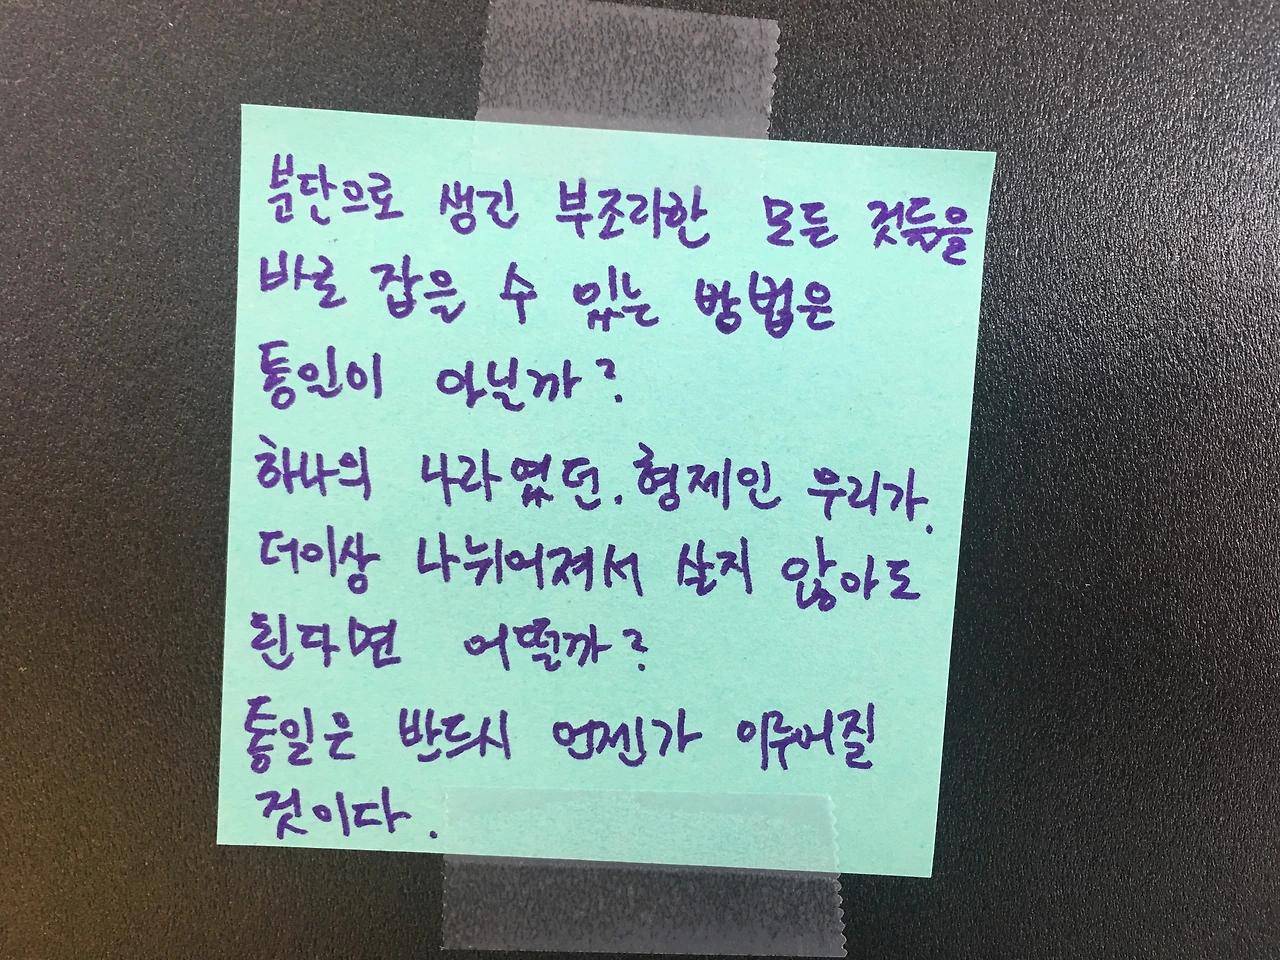 분단으로 생긴 부조리한 모든 것들을
바로 잡을 수 있는 방법은
통일이 아닐까?
하나의 나라였던. 형제인 우리가.
더이상 나뉘어져서 살지 않아도
된다면 어떨까?
통일은 반드시 언젠가 이루어질
것이다.